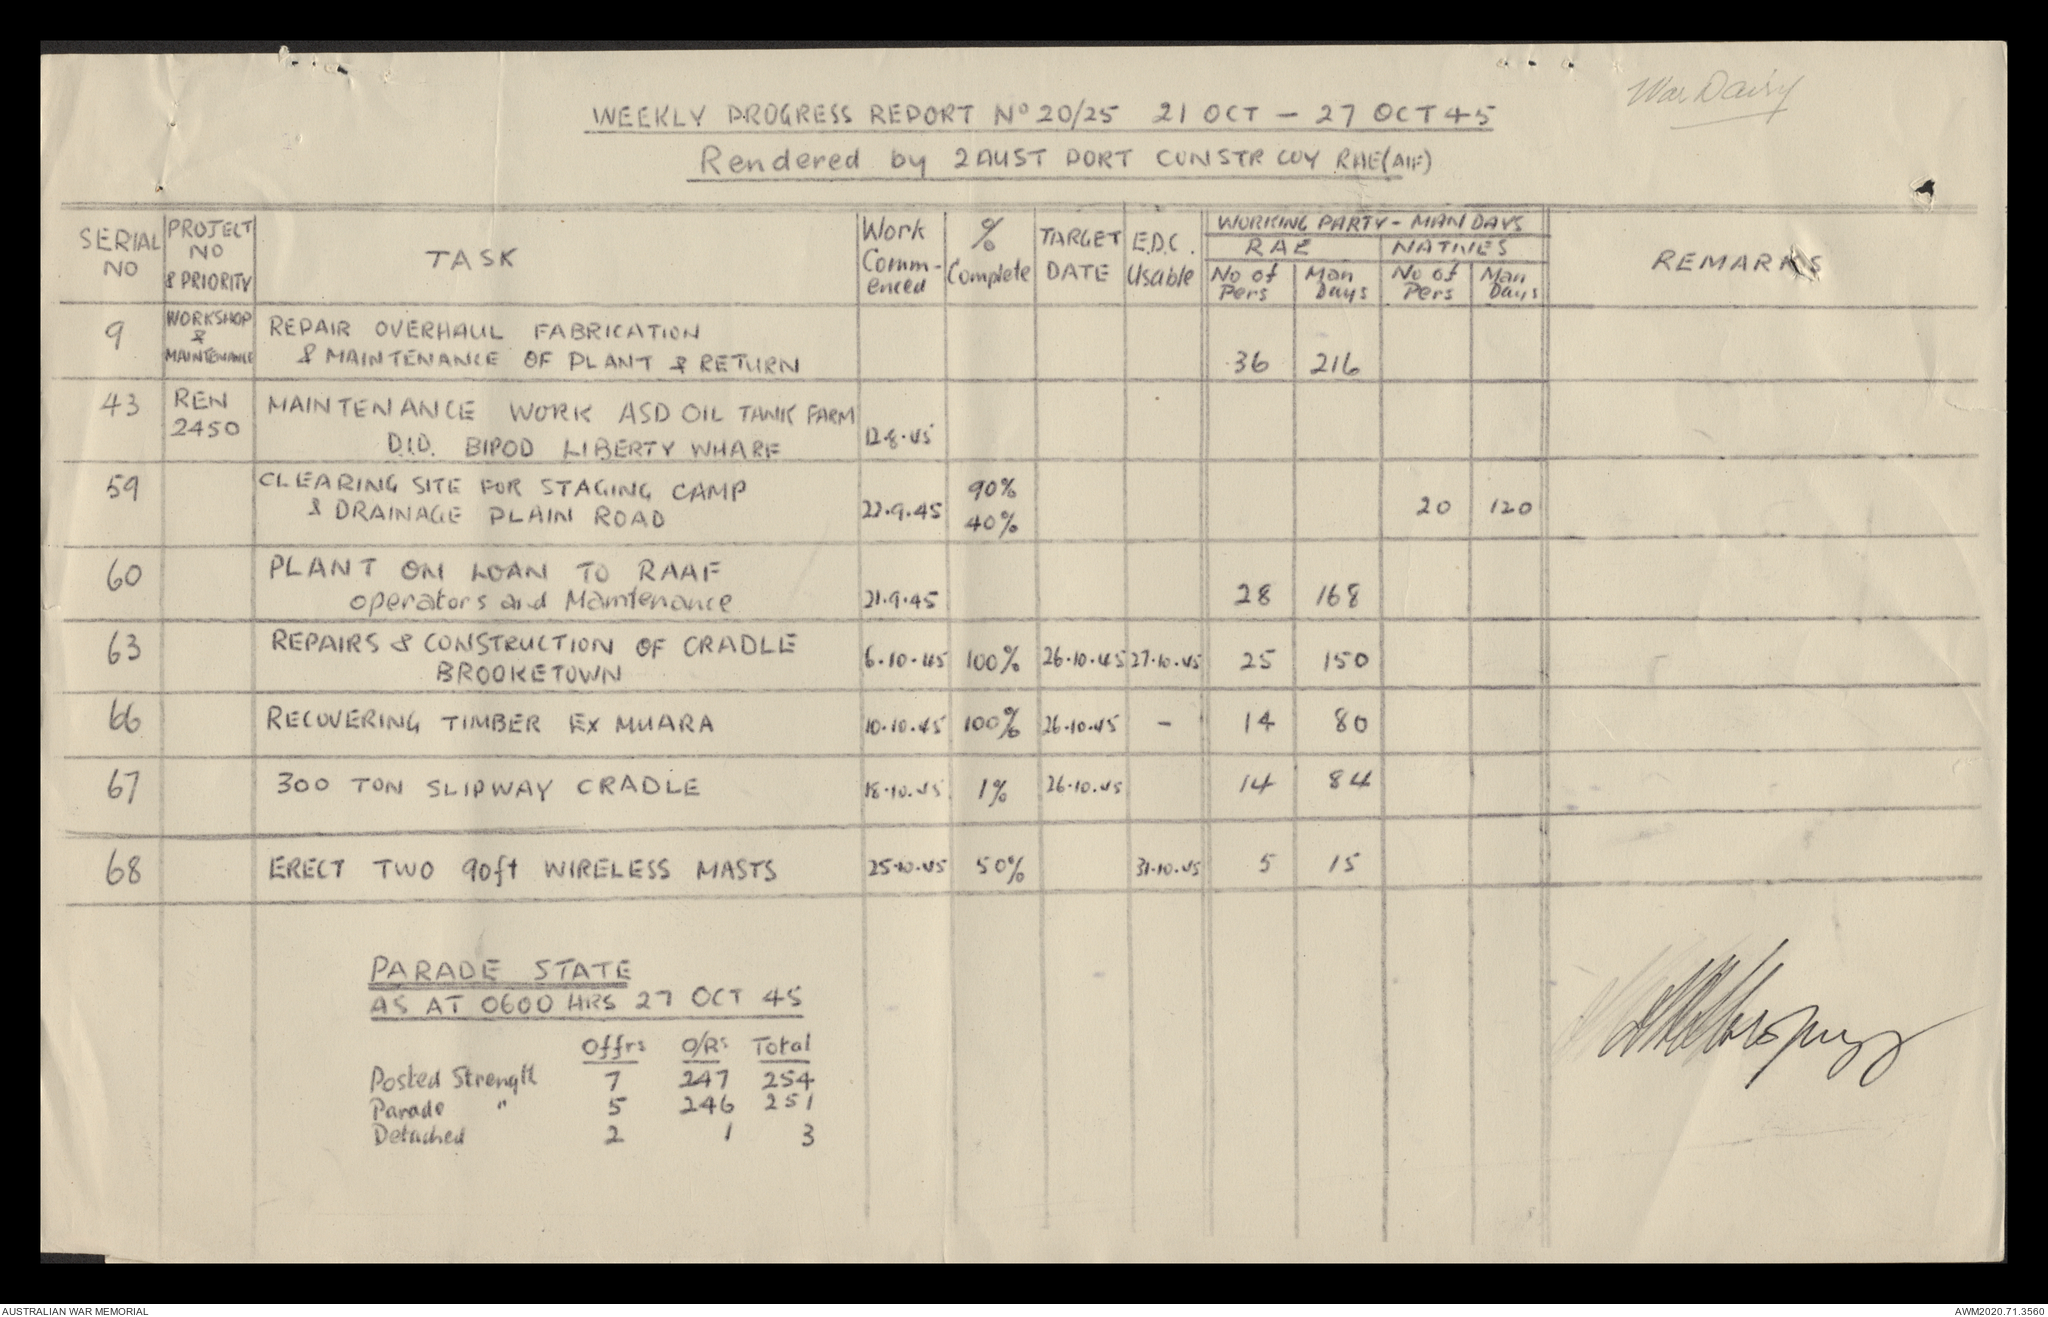 War Dairy
WEEKLY PROGRESS REPORT No 20/25 21 OCT - 27 OCT 45
Rendered by 2 AUST PORT CONSTR COY RAE (AIF)
SERIAL NO
PROJECT NO & PRIORITY
TASK
Work Comm-enced
% Complete
TARGET DATE
E.D.C. Usable
WORKING PARTY - MAN DAYS
RAE NATIVES
No of Pers Man Days No of Pers Man Days
REMARKS
9 WORKSHOP & MAINTENANCE REPAIR OVERHAUL FABRICATION
& MAINTENANCE OF PLANT & RETURN 36 216
43 REN 2450 MAINTENANCE WORK ASD OIL TANK FARM
D.I.D. BIPOD LIBERTY WHARF 12.8.45
59 CLEARING SITE FOR STAGING CAMP 90%
& DRAINAGE PLAIN ROAD 22.9.45 40% 20 120
60 PLANT ON LOAN TO RAAF
operators and Maintenance 21.9.45 28 168
63 REPAIRS & CONSTRUCTION OF CRADLE
BROOKETOWN 6.10.45 100% 26.10.45 27.10.45 25 150
66 RECOVERING TIMBER EX MUARA 10.10.45 100% 26.10.45 - 14 80
67 300 TON SLIPWAY CRADLE 18.10.45 1% 26.10.45 14 84
68 ERECT TWO 90ft WIRELESS MASTS 25.10.45 50% 31.10.45 5 15
PARADE STATE
AS AT 0600 HRS 27 OCT 45
Offrs O/Rs Total
Posted Strength 7 247 254
Parade " 5 246 251
Detached 2 1 3
AUSTRALIAN WAR MEMORIAL
AWM2020.71.3560